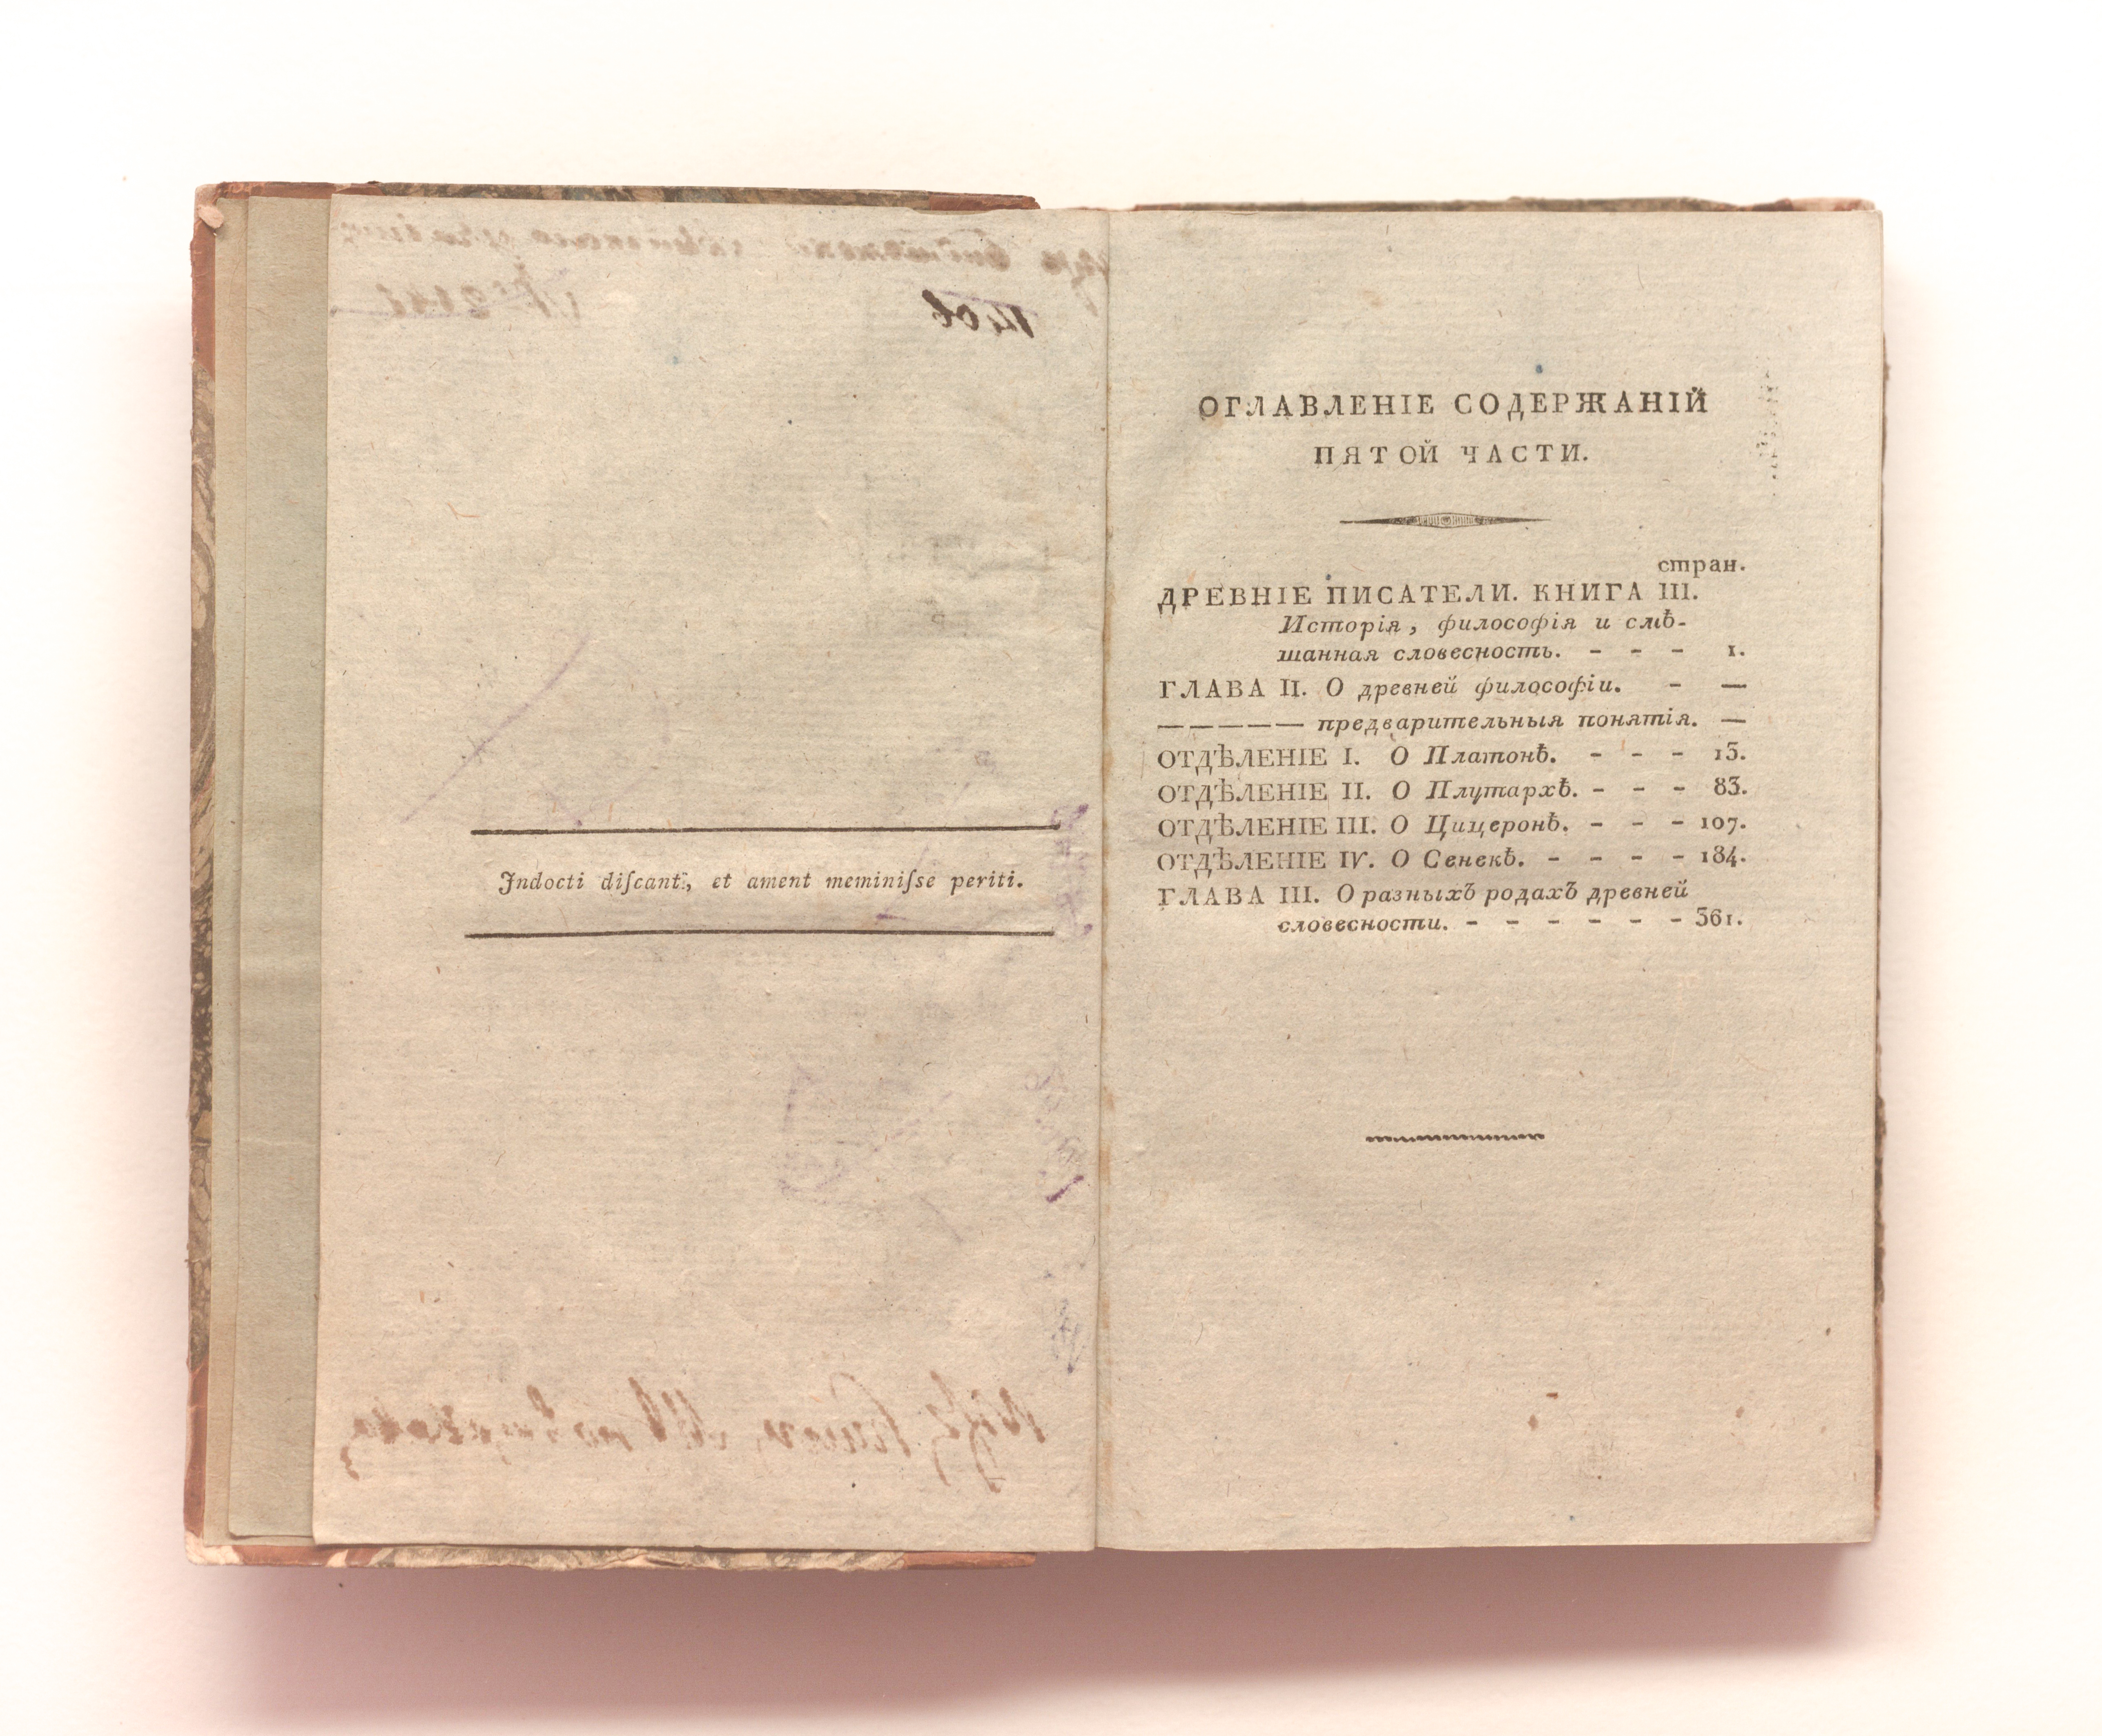 Indocti diſcant, et ament meminiſse periti.
ОГЛАВЛЕНІЕ СОДЕРЖАНІЙ
ПЯТОЙ ЧАСТИ.
стран.
ДРЕВНІЕ ПИСАТЕЛИ. КНИГА III.
Исторія, философія и смѣ-
шанная словесность. - - - 1.
ГЛАВА II. О древней философіи. - —
————— предварительныя понятія. —
ОТДѢЛЕНІЕ I. О Платонѣ. - - - 13.
ОТДѢЛЕНІЕ II. О Плутархѣ. - - - 83.
ОТДѢЛЕНІЕ III. О Цицеронѣ. - - - 107.
ОТДѢЛЕНІЕ IV. О Сенекѣ. - - - - 184.
ГЛАВА III. О разныхъ родахъ древней
словесности. - - - - - - 361.